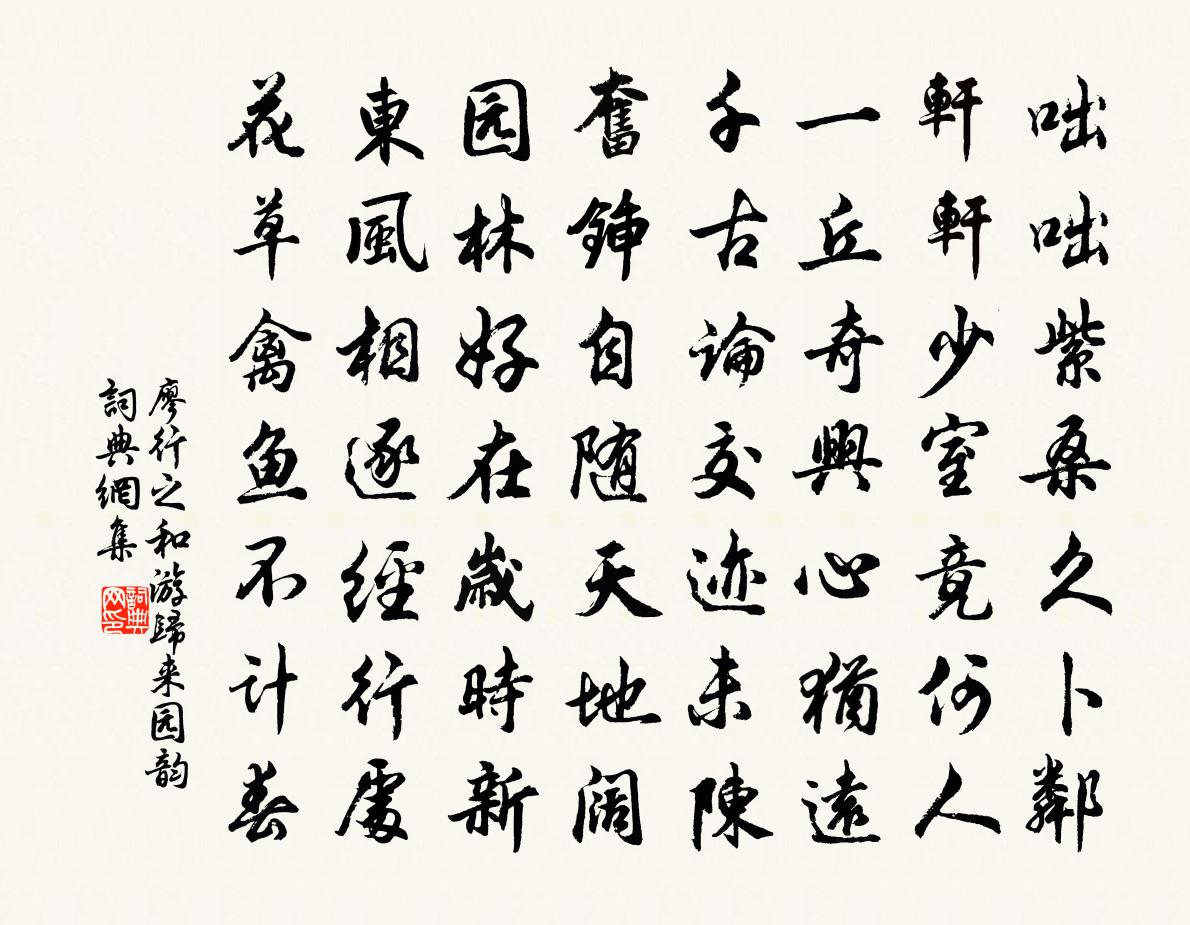 咄咄紫桑久卜鄰
軒軒少室竟何人
一丘奇興心猶遠
千古論交迹未陳
奮鍤自随天地闊
园林好在歲時新
東風相逐經行處
花草禽鱼不计春
廖行之和游歸来园韵
詞典網集
詞典网印